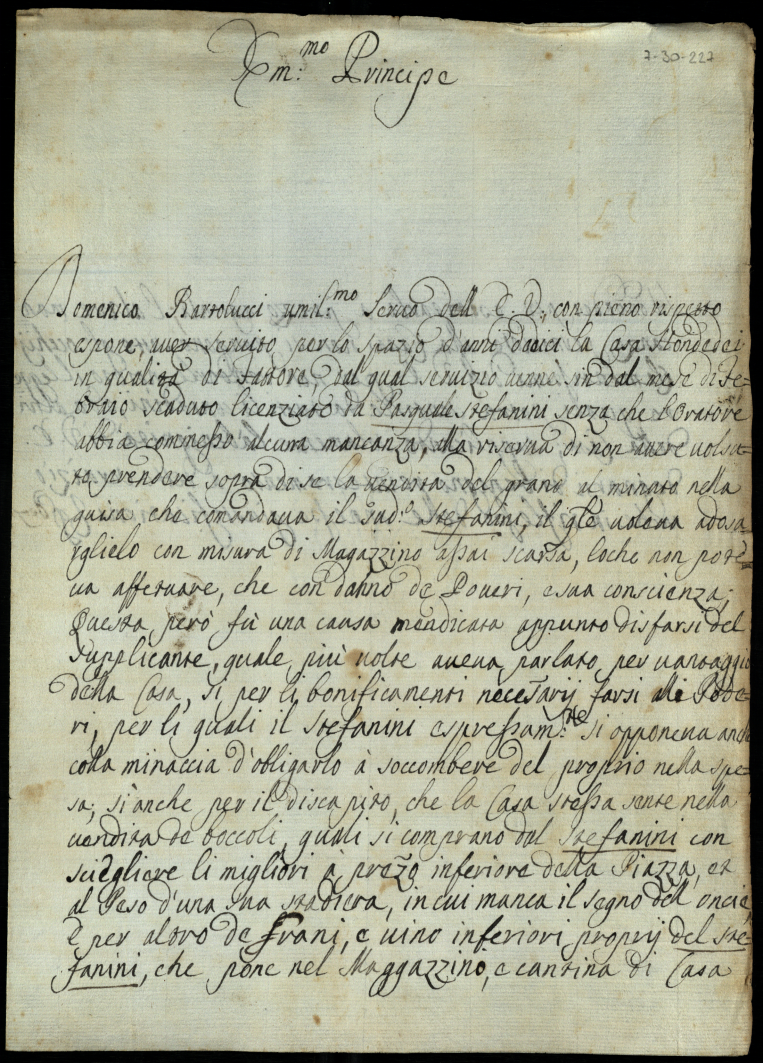 7-30-227
Em:mo Principe
Domenico Bartolucci umil:mo Servo dell E. V., con pieno rispetto
espone, aver servito per lo spazio d'anni dodici la Casa Mondedei
in qualità di Fattore, dal qual servizio venne sin dal mese di Fe-
braio scaduto licenziato da Pasquale Stefanini senza che l'Oratore
abbia commesso alcuna mancanza, alla riserva di non avere volsu-
to prendere sopra di se la vendita del grano al minuto nella
guisa, che comandava il sud:o Stefanini, il qle voleva adosa
rglielo con misura di Magazzino assai scarsa, loche non pote-
va affettuare, che con danno de Poveri, e sua conscienza;
Questa però fù una causa mendicata appunto disfarsi del
Supplicante, quale più volte aveva parlato per vantaggio
della Casa, sì per li bonificamenti necessarij farsi alli Pode-
ri, per li quali il Stefanini espressam:te si opponeva anche
colla minaccia d'obligarlo à soccombere del proprio nella spe-
sa; sì anche per il discapito, che la Casa stessa sente nella
vendita de boccoli, quali si comprano dal Stefanini con
sciegliere li migliori à prezzo inferiore della Piazza, et
al Peso d'una sua stadiera, in cui manca il segno dell oncie,
E per altro de Grani, e vino inferiori proprij del Ste-
fanini, che pone nel Maggazzino, e cantina di Casa